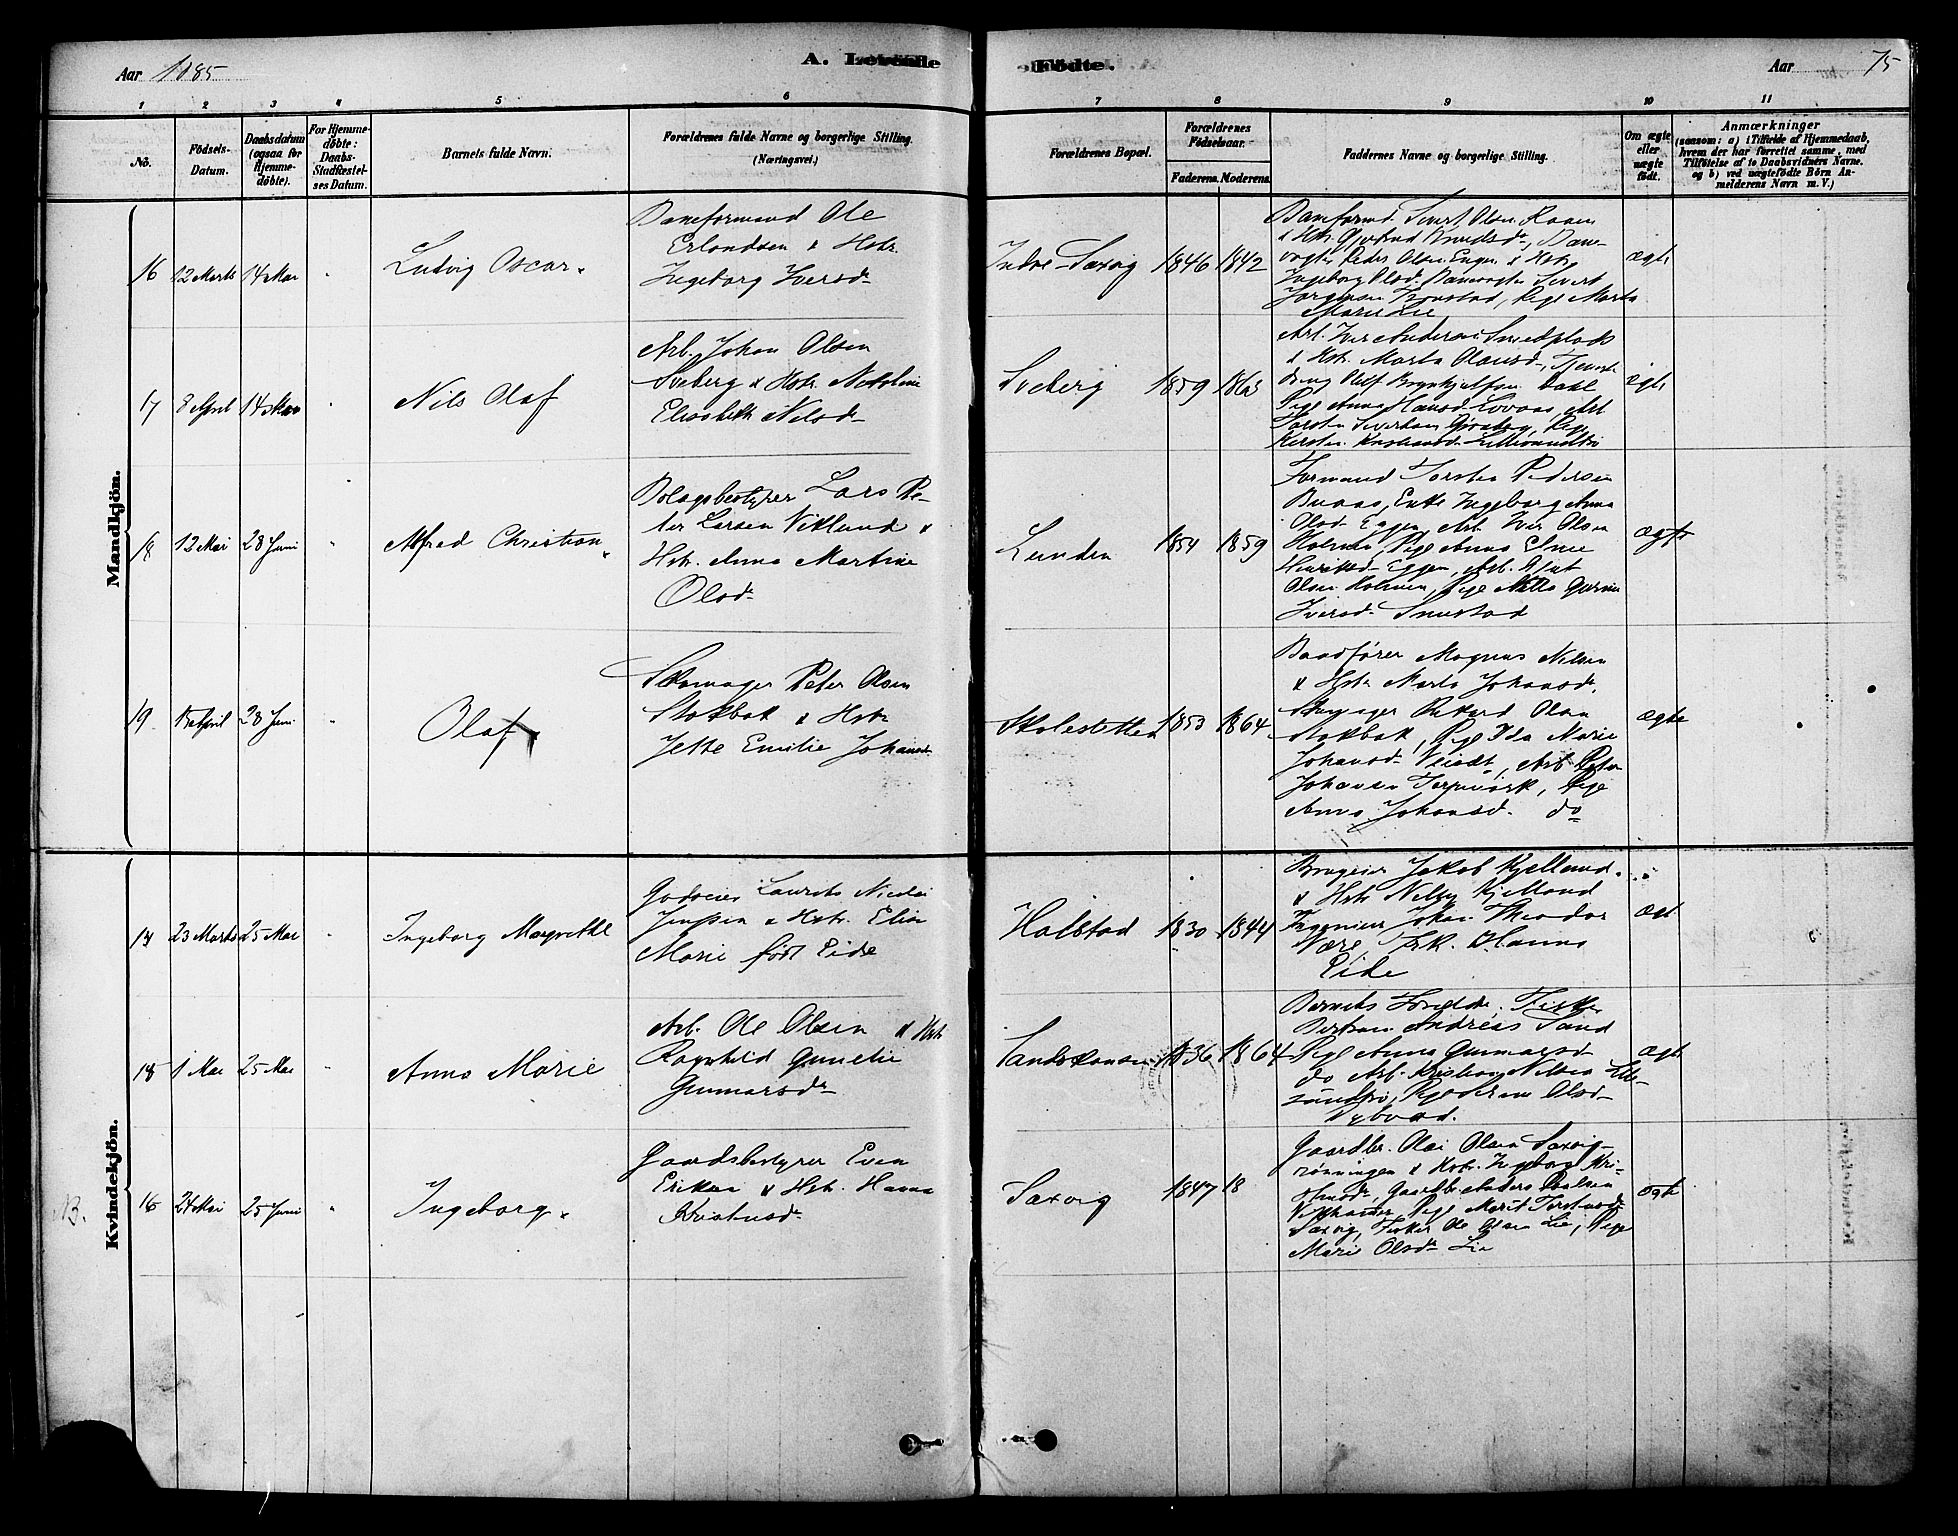 Aar 1885
A. Levende
Fødte.
Aar
75
1
2
3
4
5
6
7
8
9
10
11
No.
Födsels-
Datum.
Daabsdatum
(ogsaa for
Hjemme-
döbte).
For Hjemme-
döbte:
Daabs-
Stadfæstel-
ses Datum.
Barnets fulde Navn.
Forældrenes fulde Navne og borgerlige Stilling.
(Næringsvei.)
Forældrenes Bopæl.
Forældrenes
Födselsaar.
Faderens. Moderens.
Faddernes Navne og borgerlige Stilling.
Om ægte
eller
uægte
födt.
Anmærkninger
(saasom: a) i Tilfælde af Hjemmedaab,
hvem der har forrettet samme, med
Tilföielse af to Daabsvidners Navne.
og b) ved uægtefödte Börn An-
melderens Navn m. V.)
Mandkjön.
16
12 Marts
14 Mai
"
Ludvig Oscar.
Baneformand Ole
Erlandsen & Hstr.
Ingeborg Iversd.
Indre-Saxvig
1846
1842
Baneformd. Sivert Olsen Raaen
& Hstr. Gjertrud Knudsd., Bane-
vogter Peder Olsen Engen & Hstr.
Ingeborg Olsd. Banevogter Sivert
Jørgensen Tronstad, Pige Marta
Marie Lie
ægte
17
8 April
14 Mai
"
Nils Olaf
Arb. Johan Olsen
Sveberg & Hstr. Nikoline
Elisabeth Nilsd.
Sveberg
1859
1863
Arb. Iver Andersen Smedplads
& Hstr. Marta Olausd., Tjeneste-
dreng Oluf Brynhjulfsen Dahl
Pige Anna Hansd. Lovaas, Arb.
Torsten Sivertsen Gjøsberg, Pige
Kirsten Kristiansd.
ægte
18
12 Mai
28 Juni
"
Alfred Christian
Bolagsbestyrer Lars Pe-
ter Larsen Viklund &
Hstr. Anna Martine
Olsd.
Lunden
1854
1859
Formand Torsten Pedersen
Buaas, Enke Ingeborg Anna
Olsd. Eggen, Arb. Iver Olsen
Holmen, Pige Anna Sine
Henriksd. Eggen, Arb.
Olsen Holmen, Pige
Iversd. Snustad
ægte
19
28 Juni
"
Olaf
Skomager Peter Olsen
Stokbak & Hstr
Jette Emilie Johansd.
Skolestetten
1853
1864
Baadfører Magnus Nilsen
& Hstr Marta Johansd.
Skomager Rikard Olsen
Stokbak, Pige Ida Marie
Johansd. Veisdt, Arb. Peter
Johansen Torpmark, Pige
Anna Johansd. do
ægte
Kvindekjön.
14
23 Marts
25 Mai
"
Ingeborg Margrethe
Godseier Laurits Nicolai
Jenssen & Hstr. Elise
Marie født Eide
Halstad
1830
1844
Brugeier Jakob Kjelland
& Hstr Nelly Kjelland
Ingeniør Johan Theodor
Nære, Frk. Hanna
Eide
ægt
15
1 Mai
25 Mai
"
Anna Marie
Arb. Ole Olsen & Hstr
Ragnhild Gunelie
Gunnarsd.
Sandskansen
1836
1864
Barnets Forældre. Fisker
Bertram Andreas Sand
Pige Anna Gunnarsd.
do Arb. Kristian Nilsen
Olsd.
Dybvad.
ægt
16
24 Mai
25 Juni
"
Ingeborg.
Gaardsbestyrer Even
Eriksen & Hstr. Hanna
Kristensd.
Saxvig
1847
18
Gaardbr. Olai Olsen Saxvig-
rønningen & Hstr. Ingeborg Kri-
stensd., Gaardbr. Anders Paulsen
Vikhammer, Pige Marit Torstensd.
Saxvig, Fisker Ole Olsen Lie, Pige
Marie Olsd. Lie
ægte
B.